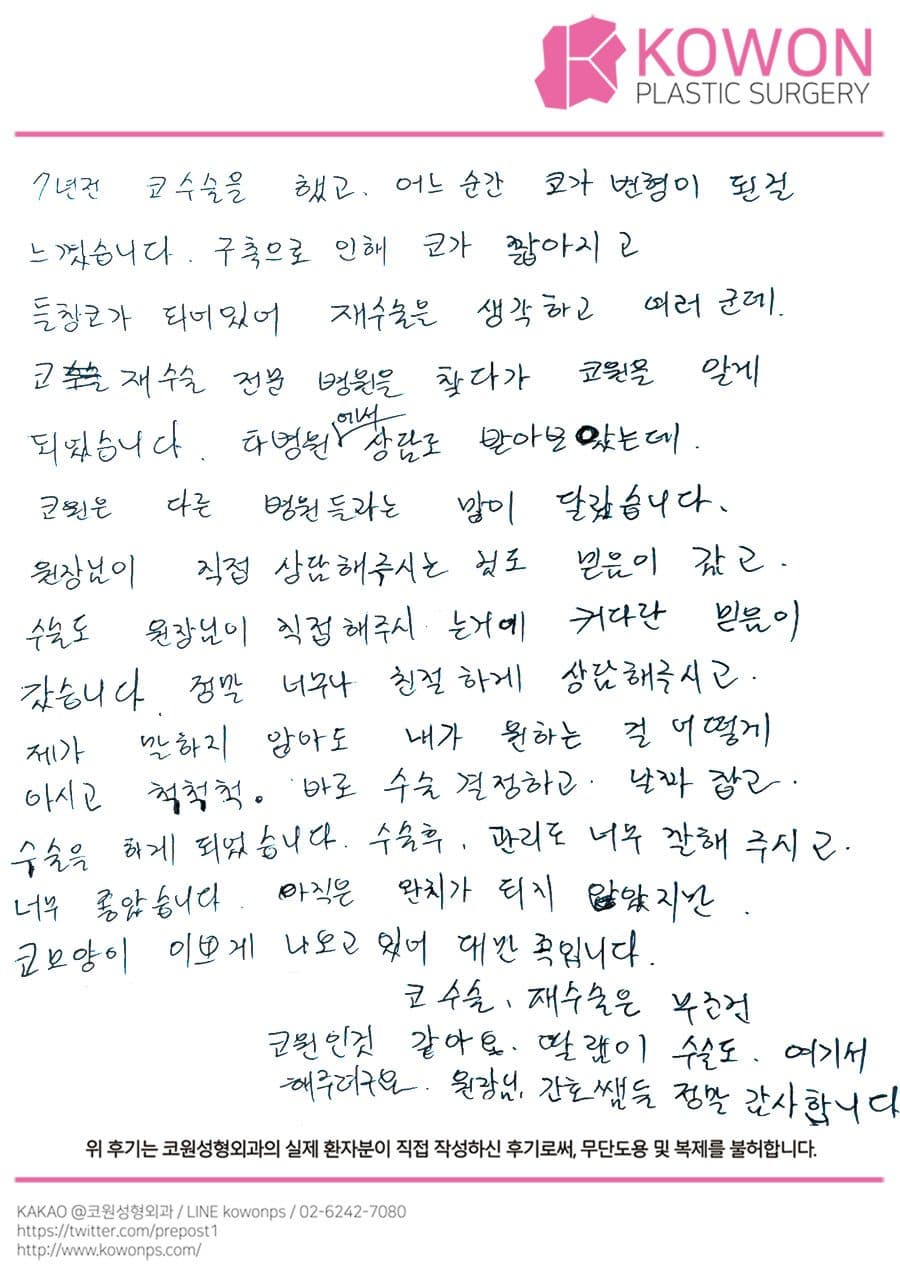 KOWON
PLASTIC SURGERY
7년전 코수술을 했고. 어느 순간 코가 변형이 된걸
느꼈습니다. 구축으로 인해 코가 짧아지고
들창코가 되어있어 재수술을 생각하고 여러 군데.
코 재수술 전문 병원을 찾다가 코원을 알게
되었습니다. 타병원에서 상담도 받아보았는데.
코원은 다른 병원들과는 많이 달랐습니다.
원장님이 직접 상담해주시는 점도 믿음이 갔고.
수술도 원장님이 직접해주시는거에 커다란 믿음이
갔습니다. 정말 너무나 친절하게 상담해주시고.
제가 말하지 않아도 내가 원하는 걸 어떻게
아시고 척척척. 바로 수술 결정하고. 날짜 잡고.
수술을 하게 되었습니다. 수술후, 관리도 너무 잘해 주시고.
너무 좋았습니다. 아직은 완치가 되지 않았지만.
코모양이 이쁘게 나오고 있어 대만족입니다.
코 수술, 재수술은 무조건
코원인것 같아요. 딸램이 수술도. 여기서
해주려구요. 원장님, 간호쌤들 정말 감사합니다
위 후기는 코원성형외과의 실제 환자분이 직접 작성하신 후기로써, 무단도용 및 복제를 불허합니다.
KAKAO @코원성형외과 / LINE kowonps / 02-6242-7080
https://twitter.com/prepost1
http://www.kowonps.com/